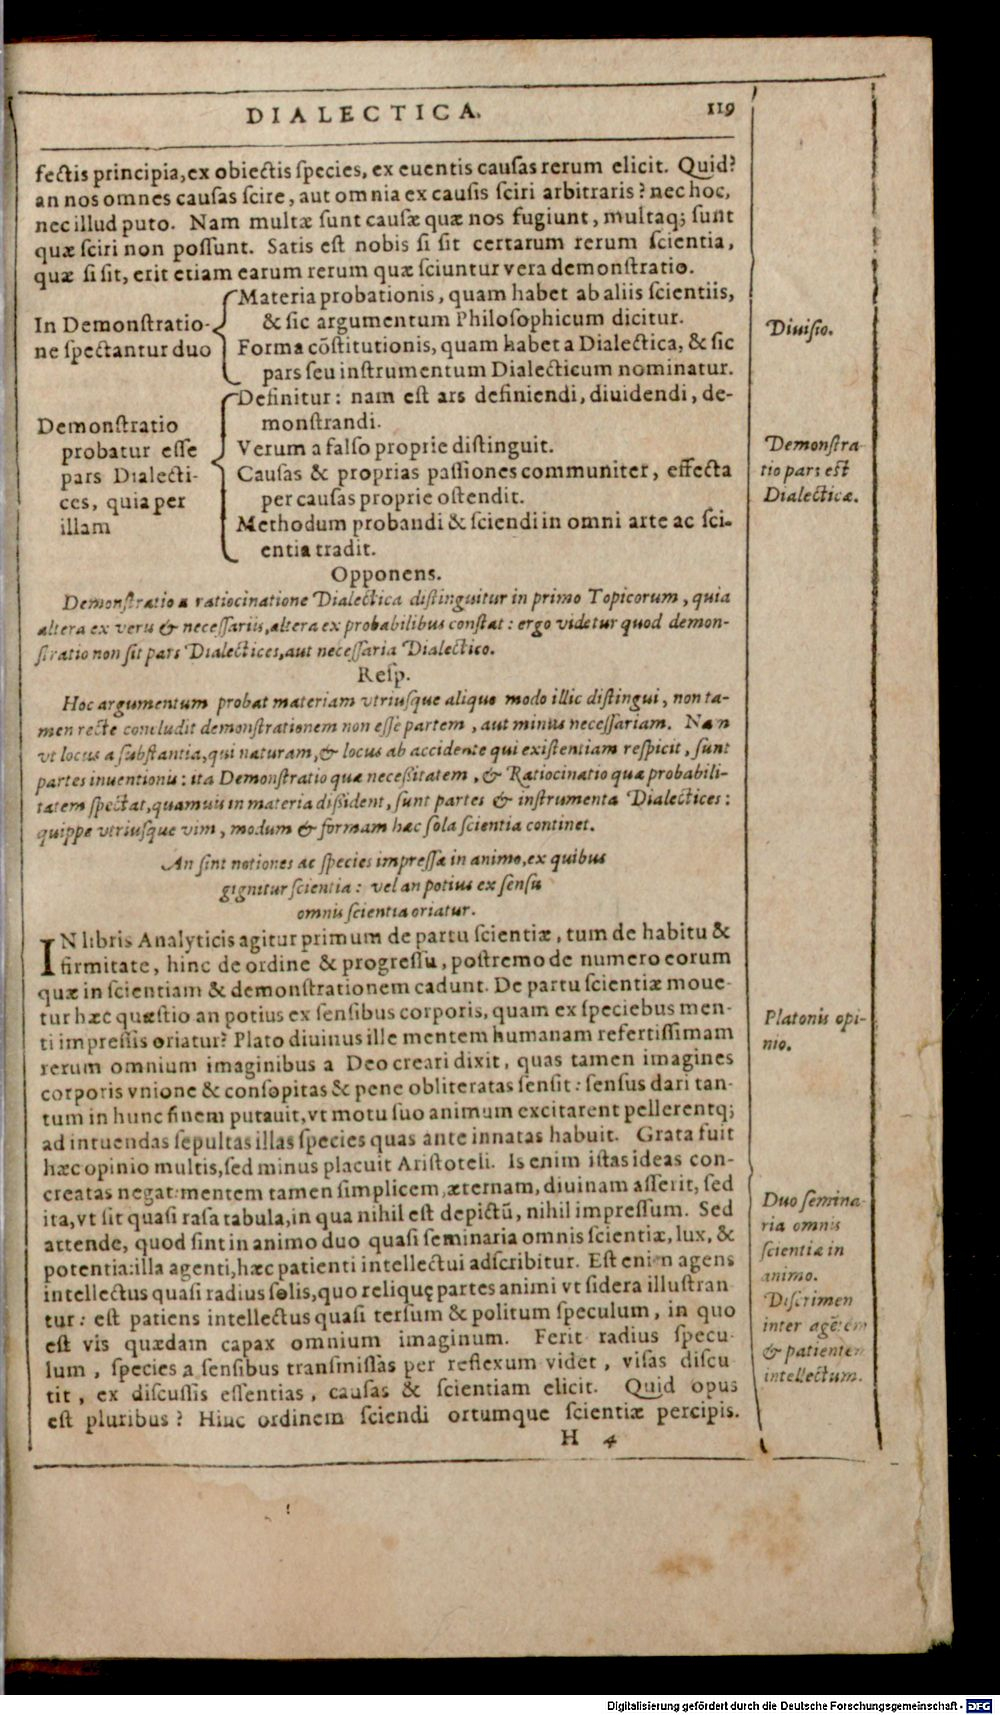 DIALECTICA. 119
fectis principia, ex obiectis species, ex euentis causas rerum elicit. Quid?
an nos omnes causas scire, aut omnia ex causis sciri arbitraris? nec hoc,
nec illud puto. Nam multæ sunt causæ quæ nos fugiunt, multaq; sunt
quæ sciri non possunt. Satis est nobis si sit certarum rerum scientia,
quæ si sit, erit etiam earum rerum quæ sciuntur vera demonstratio.
In Demonstratio-
ne spectantur duo
Materia probationis, quam habet ab aliis scientiis,
& sic argumentum Philosophicum dicitur.
Forma cõstitutionis, quam habet a Dialectica, & sic
pars seu instrumentum Dialecticum nominatur.
Diuisio.
Demonstratio
probatur esse
pars Dialecti-
ces, quia per
illam
Definitur: nam est ars definiendi, diuidendi, de-
monstrandi.
Verum a falso proprie distinguit.
Causas & proprias passiones communiter, effecta
per causas proprie ostendit.
Methodum probandi & sciendi in omni arte ac sci-
entia tradit.
Demonstra-
tio pars est
Dialecticæ.
Opponens.
Demonstratio a ratiocinatione Dialectica distinguitur in primo Topicorum, quia
altera ex veris & necessariis, altera ex probabilibus constat: ergo videtur quod demon-
stratio non sit pars Dialectices, aut necessaria Dialectico.
Resp.
Hoc argumentum probat materiam vtriusque aliquo modo illic distingui, non ta-
men recte concludit demonstrationem non esse partem, aut minus necessariam. Nam
vt locus a substantia, qui naturam, & locus ab accidente qui existentiam respicit, sunt
partes inuentionis: ita Demonstratio quæ necessitatem, & Ratiocinatio quæ probabili-
tatem spectat, quamuis in materia dissident, sunt partes & instrumenta Dialectices:
quippe vtriusque vim, modum & formam hæc sola scientia continet.
An sint notiones ac species impressæ in animo, ex quibus
gignitur scientia: vel an potius ex sensu
omnis scientia oriatur.
IN libris Analyticis agitur primum de partu scientiæ, tum de habitu &
firmitate, hinc de ordine & progressu, postremo de numero eorum
quæ in scientiam & demonstrationem cadunt. De partu scientiæ moue-
tur hæc quæstio an potius ex sensibus corporis, quam ex speciebus men-
ti impressis oriatur? Plato diuinus ille mentem humanam refertissimam
rerum omnium imaginibus a Deo creari dixit, quas tamen imagines
corporis vnione & consopitas & pene obliteratas sensit: sensus dari tan-
tum in hunc finem putauit, vt motu suo animum excitarent pellerentq;
ad intuendas sepultas illas species quas ante innatas habuit. Grata fuit
hæc opinio multis, sed minus placuit Aristoteli. Is enim istas ideas con-
creatas negat: mentem tamen simplicem, æternam, diuinam asserit, sed
ita, vt sit quasi rasa tabula, in qua nihil est depictũ, nihil impressum. Sed
attende, quod sint in animo duo quasi seminaria omnis scientiæ, lux, &
potentia: illa agenti, hæc patienti intellectui adscribitur. Est enim agens
intellectus quasi radius solis, quo reliquę partes animi vt sidera illustran
tur: est patiens intellectus quasi tersum & politum speculum, in quo
est vis quædam capax omnium imaginum. Ferit radius specu-
lum, species a sensibus transmissas per reflexum videt, visas discu
tit, ex discussis essentias, causas & scientiam elicit. Quid opus
est pluribus? Hinc ordinem sciendi ortumque scientiæ percipis.
Platonis opi-
nio.
Duo semina-
ria omnis
scientiæ in
animo.
Discrimen
inter agẽtem
& patientem
intellectum.
H 4
Digitalisierung gefördert durch die Deutsche Forschungsgemeinschaft - DFG